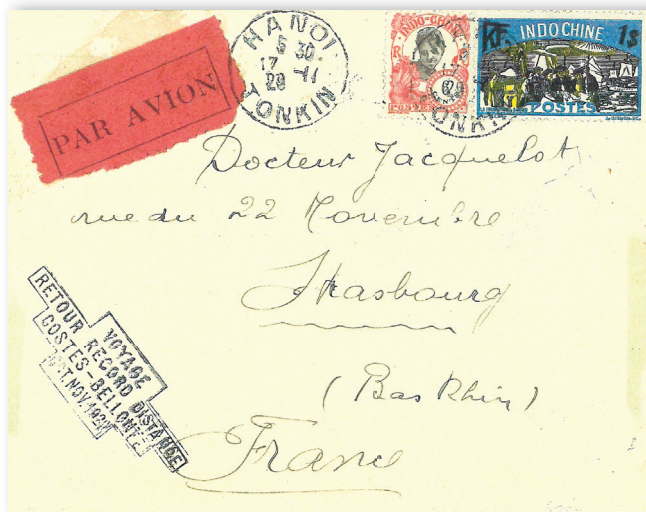 PAR AVION
HANOI
5 30
17 -11
29
TONKIN
INDO-CHINE
R
F
INDOCHINE
RF
1$
POSTES
Docteur Jacquelot
rue du 22 Novembre
Strasbourg
(Bas Rhin)
France
VOYAGE
RETOUR RECORD DISTANCE
COSTES-BELLONTE
OCT.NOV.1929